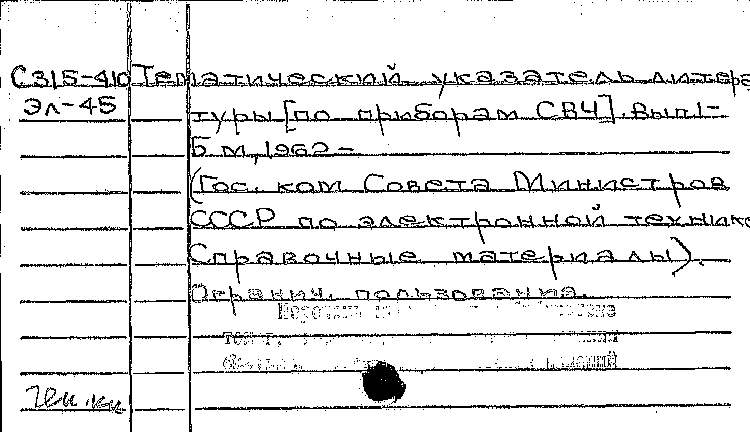 С315-410 Тематический указатель литера
Эл-45 туры [по приборам СВЧ]. Вып1-
Б м, 1962 -
(Гос. ком Совета Министров
СССР по электронной техник
Справочные материалы).
Огранич. пользования.
Ген. кк